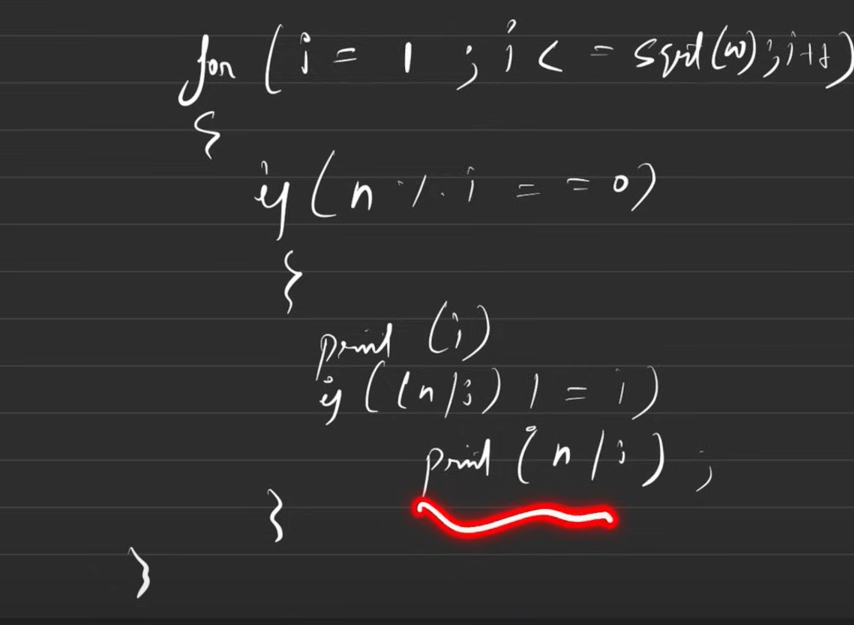 for (i = 1 ; i < = sqrt(n) ; i++)
{
if (n % i = = 0)
{
print (i)
if ((n/i) ! = i)
print (n/i) ;
}
}